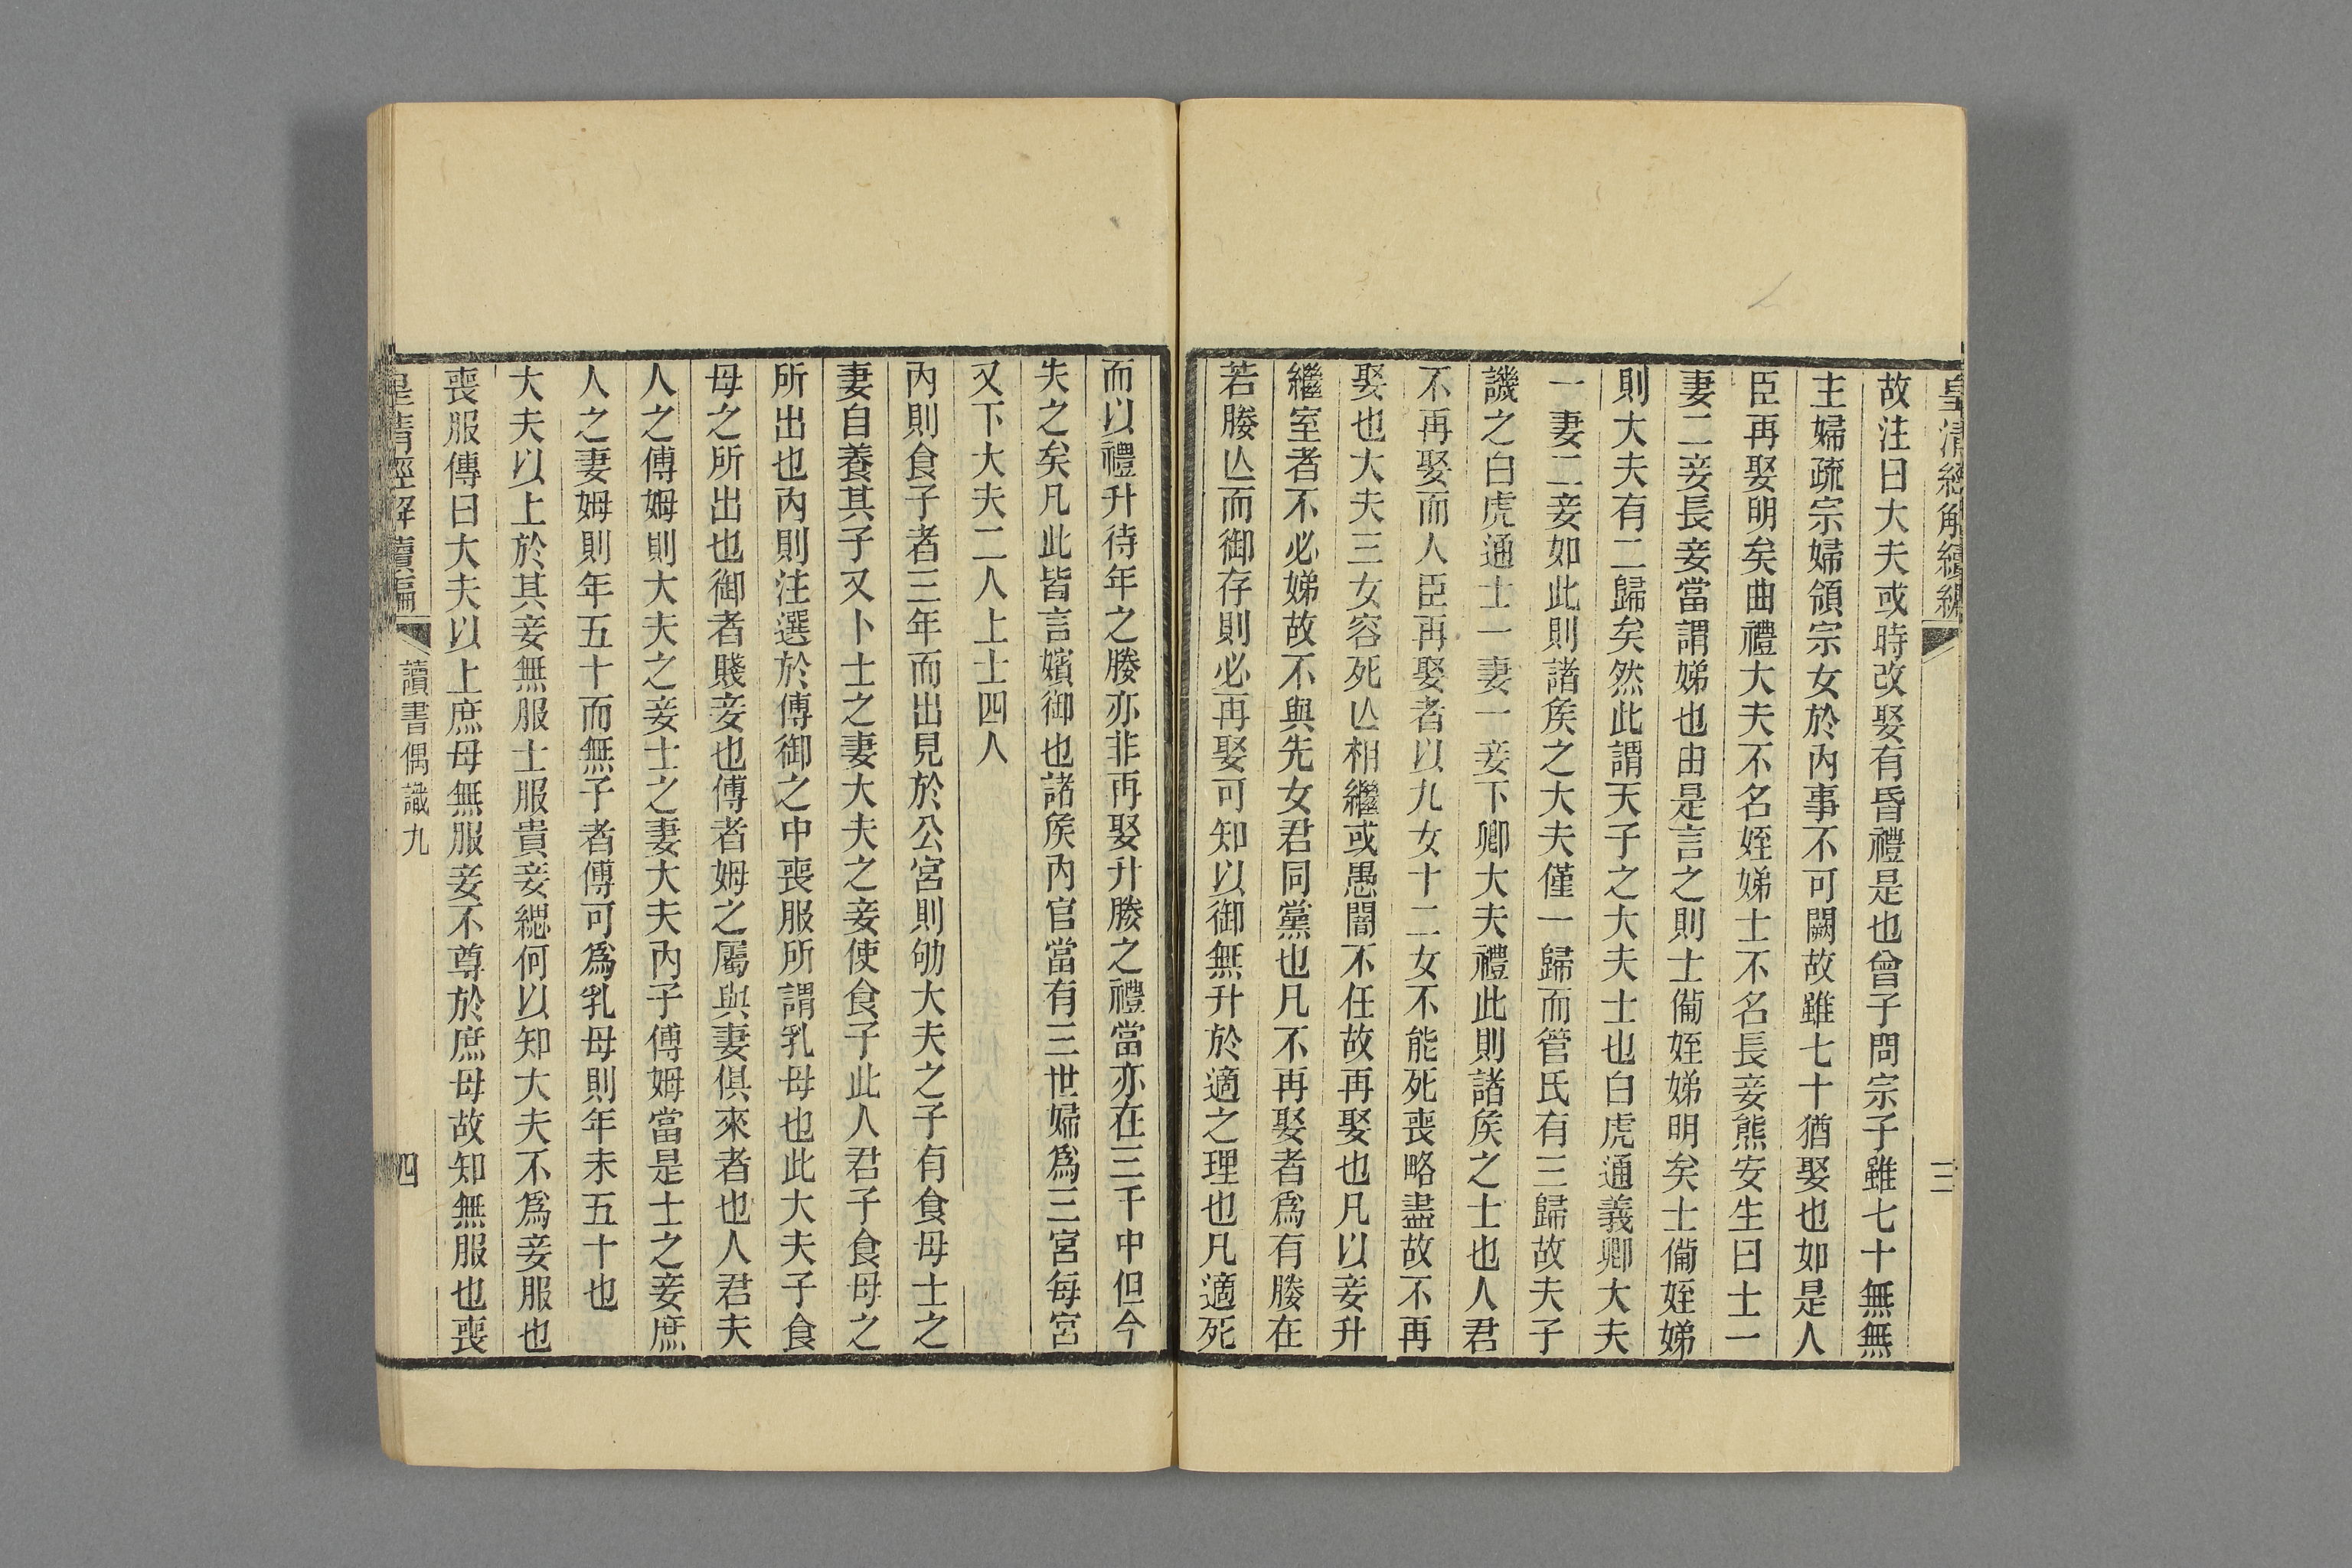 皇清經解續編
三
故注曰大夫或時改娶有昏禮是也曾子問宗子雖七十無無
主婦疏宗婦領宗女於內事不可闕故雖七十猶娶也如是人
臣再娶明矣曲禮大夫不名姪娣士不名長妾熊安生曰士一
妻二妾長妾當謂娣也由是言之則士僃姪娣明矣士僃姪娣
則大夫有二歸矣然此謂天子之大夫士也白虎通義卿大夫
一妻二妾如此則諸矦之大夫僅一歸而管氏有三歸故夫子
譏之白虎通士一妻一妾下卿大夫禮此則諸矦之士也人君
不再娶而人臣再娶者以九女十二女不能死喪略盡故不再
娶也大夫三女容死亾相繼或愚闇不任故再娶也凡以妾升
繼室者不必娣故不與先女君同黨也凡不再娶者爲有媵在
若媵亾而御存則必再娶可知以御無升於適之理也凡適死
而以禮升待年之媵亦非再娶升媵之禮當亦在三千中但今
失之矣凡此皆言嬪御也諸矦內官當有三世婦爲三宮每宮
又下大夫二人上士四人
內則食子者三年而出見於公宮則劬大夫之子有食母士之
妻自養其子又卜士之妻大夫之妾使食子此人君子食母之
所出也內則注選於傅御之中喪服所謂乳母也此大夫子食
母之所出也御者賤妾也傅者姆之屬與妻俱來者也人君夫
人之傅姆則大夫之妾士之妻大夫內子傅姆當是士之妾庶
人之妻姆則年五十而無子者傅可爲乳母則年未五十也
大夫以上於其妾無服士服貴妾緦何以知大夫不爲妾服也
喪服傳曰大夫以上庶母無服妾不尊於庶母故知無服也喪
皇清經解續編
讀書偶識九
四